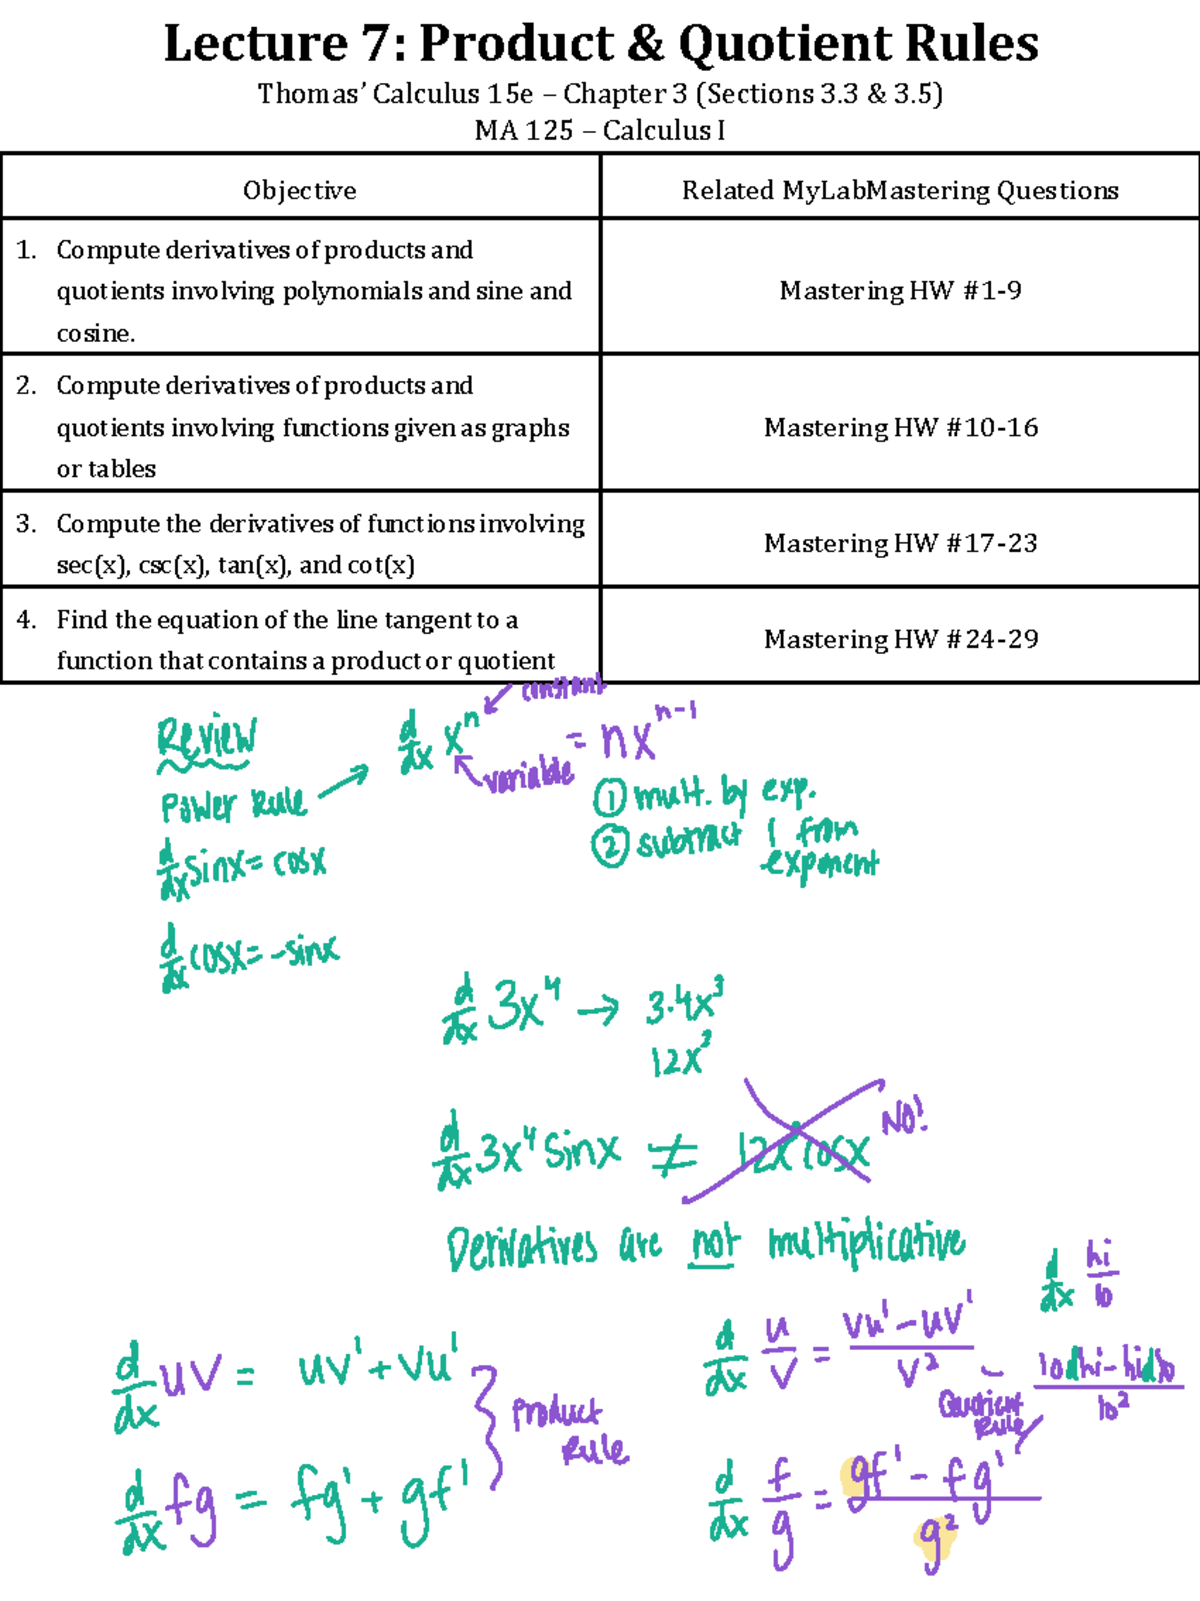 Lecture 7: Product & Quotient Rules
Thomas’ Calculus 15e – Chapter 3 (Sections 3.3 & 3.5)
MA 125 – Calculus I
Objective
Related MyLabMastering Questions
1. Compute derivatives of products and
quotients involving polynomials and sine and
cosine.
Mastering HW #1-9
2. Compute derivatives of products and
quotients involving functions given as graphs
or tables
Mastering HW #10-16
3. Compute the derivatives of functions involving
sec(x), csc(x), tan(x), and cot(x)
Mastering HW #17-23
4. Find the equation of the line tangent to a
function that contains a product or quotient
Mastering HW #24-29
Review
Power Rule →
d/dx xⁿ = nxⁿ⁻¹
constant
variable
① mult. by exp.
② subtract 1 from
exponent
d/dx sinx = cosx
d/dx cosx = -sinx
d/dx 3x⁴ → 3·4x³
12x³
d/dx 3x⁴ sinx ≠ 12x³ cosx NO!
Derivatives are not multiplicative
d/dx hi/lo
lodhi - hidlo / lo²
d/dx uv = uv' + vu'
d/dx fg = fg' + gf'
Product
Rule
d/dx u/v = vu' - uv' / v²
Quotient
Rule
d/dx f/g = gf' - fg' / g²